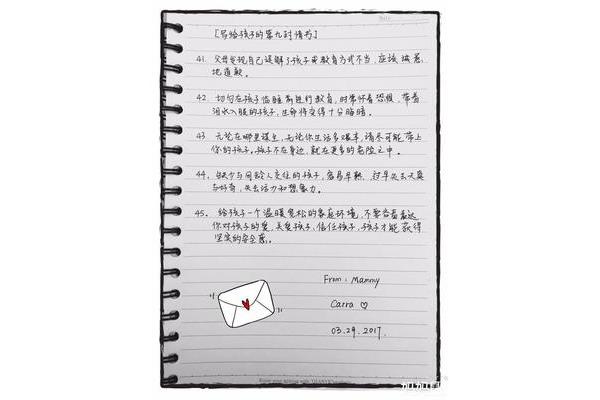 [写给孩子的第九封情书]
41. 父母发现自己误解了孩子或教育方式不当,应该诚恳
地道歉。
42. 切勿在孩子临睡前进行教育,时常怀着恐惧、带着
泪水入眠的孩子,生命将变得十分脆弱。
43. 无论在哪里谋生,无论你生活多艰辛,请尽可能带上
你的孩子。孩子不在身边,就在更多的危险之中。
44. 缺少与同龄人交往的孩子,容易早熟,过早失去天真
与好奇,失去活力和想象力。
45. 给孩子一个温暖宽松的家庭环境,不要吝啬表达
你对孩子的爱,关爱孩子,信任孩子,孩子才能获得
坚实的安全感。
From: Mammy
Carra
03.29.2017.